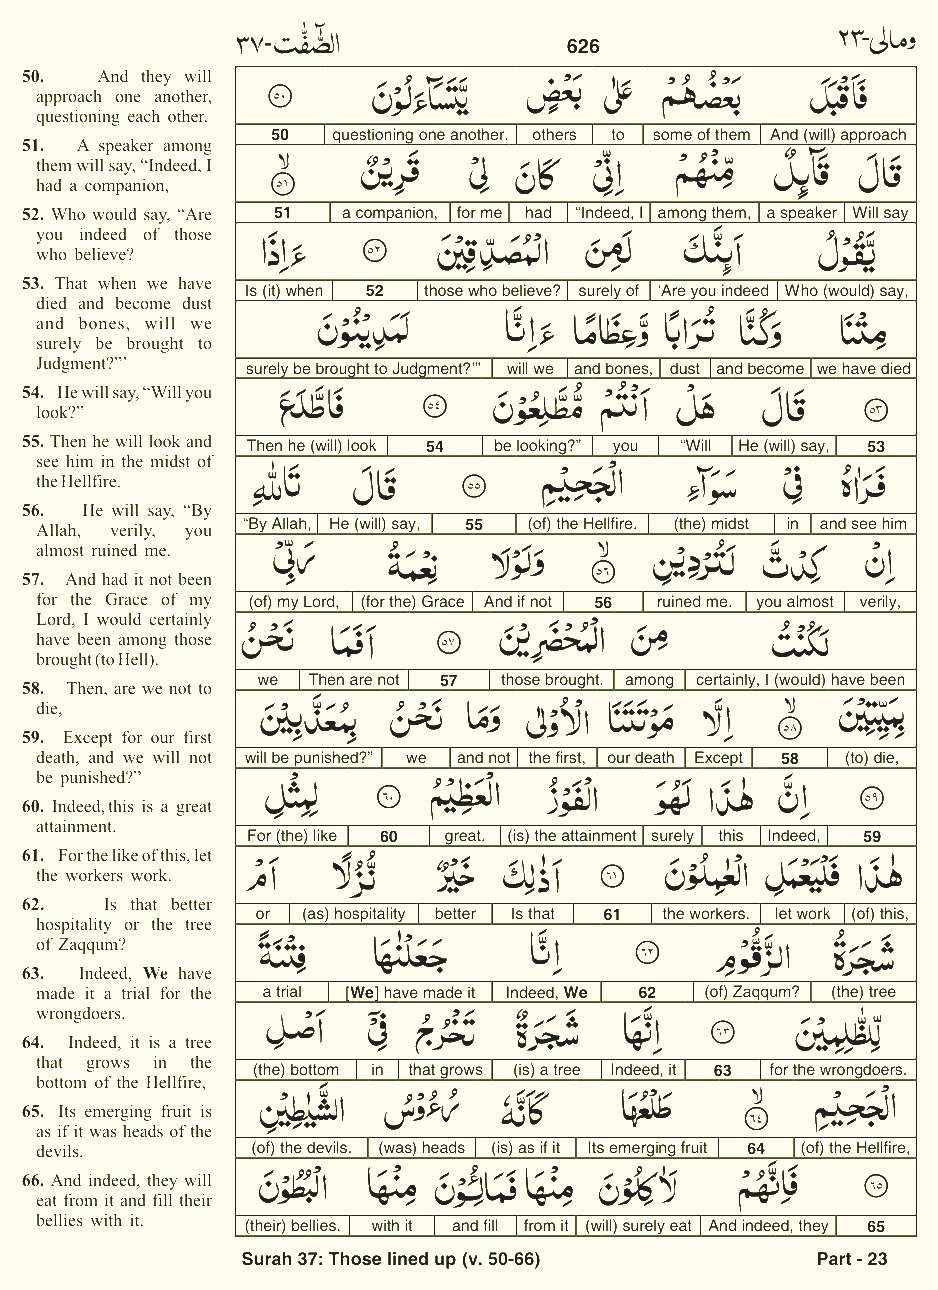 الصّٰٓفّٰت-٣٧ 626 ومالى-٢٣
50. And they will
approach one another,
questioning each other.
51. A speaker among
them will say, “Indeed, I
had a companion,
52. Who would say, “Are
you indeed of those
who believe?
53. That when we have
died and become dust
and bones, will we
surely be brought to
Judgment?”’
54. He will say, “Will you
look?”
55. Then he will look and
see him in the midst of
the Hellfire.
56. He will say, “By
Allah, verily, you
almost ruined me.
57. And had it not been
for the Grace of my
Lord, I would certainly
have been among those
brought (to Hell).
58. Then, are we not to
die,
59. Except for our first
death, and we will not
be punished?”
60. Indeed, this is a great
attainment.
61. For the like of this, let
the workers work.
62. Is that better
hospitality or the tree
of Zaqqum?
63. Indeed, We have
made it a trial for the
wrongdoers.
64. Indeed, it is a tree
that grows in the
bottom of the Hellfire,
65. Its emerging fruit is
as if it was heads of the
devils.
66. And indeed, they will
eat from it and fill their
bellies with it.
فَاَقْبَلَ بَعْضُهُمْ عَلٰى بَعْضٍ يَّتَسَآءَلُوْنَ ٥٠
50 questioning one another. others to some of them And (will) approach
قَالَ قَآىِٕلٌ مِّنْهُمْ اِنِّىْ كَانَ لِىْ قَرِيْنٌ ۙ ٥١
51 a companion, for me had “Indeed, I among them, a speaker Will say
يَّقُوْلُ اَىِٕنَّكَ لَمِنَ الْمُصَدِّقِيْنَ ٥٢ ءَاِذَا
Is (it) when 52 those who believe? surely of ‘Are you indeed Who (would) say,
مِتْنَا وَكُنَّا تُرَابًا وَّعِظَامًا ءَاِنَّا لَمَدِيْنُوْنَ
surely be brought to Judgment?’” will we and bones, dust and become we have died
٥٣ قَالَ هَلْ اَنْتُمْ مُّطَّلِعُوْنَ ٥٤ فَاطَّلَعَ
Then he (will) look 54 be looking?” you “Will He (will) say, 53
فَرَاٰهُ فِىْ سَوَآءِ الْجَحِيْمِ ٥٥ قَالَ تَاللّٰهِ
“By Allah, He (will) say, 55 (of) the Hellfire. (the) midst in and see him
اِنْ كِدْتَّ لَتُرْدِيْنِ ۙ ٥٦ وَلَوْلَا نِعْمَةُ رَبِّىْ
(of) my Lord, (for the) Grace And if not 56 ruined me. you almost verily,
لَكُنْتُ مِنَ الْمُحْضَرِيْنَ ٥٧ اَفَمَا نَحْنُ
we Then are not 57 those brought. among certainly, I (would) have been
بِمَيِّتِيْنَ ۙ ٥٨ اِلَّا مَوْتَتَنَا الْاُوْلٰى وَمَا نَحْنُ بِمُعَذَّبِيْنَ
will be punished?” we and not the first, our death Except 58 (to) die,
٥٩ اِنَّ هٰذَا لَهُوَ الْفَوْزُ الْعَظِيْمُ ٦٠ لِمِثْلِ
For (the) like 60 great. (is) the attainment surely this Indeed, 59
هٰذَا فَلْيَعْمَلِ الْعٰمِلُوْنَ ٦١ اَذٰلِكَ خَيْرٌ نُّزُلًا اَمْ
or (as) hospitality better Is that 61 the workers. let work (of) this,
شَجَرَةُ الزَّقُّوْمِ ٦٢ اِنَّا جَعَلْنٰهَا فِتْنَةً
a trial [We] have made it Indeed, We 62 (of) Zaqqum? (the) tree
لِّلظّٰلِمِيْنَ ٦٣ اِنَّهَا شَجَرَةٌ تَخْرُجُ فِىْٓ اَصْلِ
(the) bottom in that grows (is) a tree Indeed, it 63 for the wrongdoers.
الْجَحِيْمِ ۙ ٦٤ طَلْعُهَا كَاَنَّهٗ رُءُوْسُ الشَّيٰطِيْنِ
(of) the devils. (was) heads (is) as if it Its emerging fruit 64 (of) the Hellfire,
٦٥ فَاِنَّهُمْ لَاٰكِلُوْنَ مِنْهَا فَمَالِـُٔوْنَ مِنْهَا الْبُطُوْنَ
(their) bellies. with it and fill from it (will) surely eat And indeed, they 65
Surah 37: Those lined up (v. 50-66) Part - 23